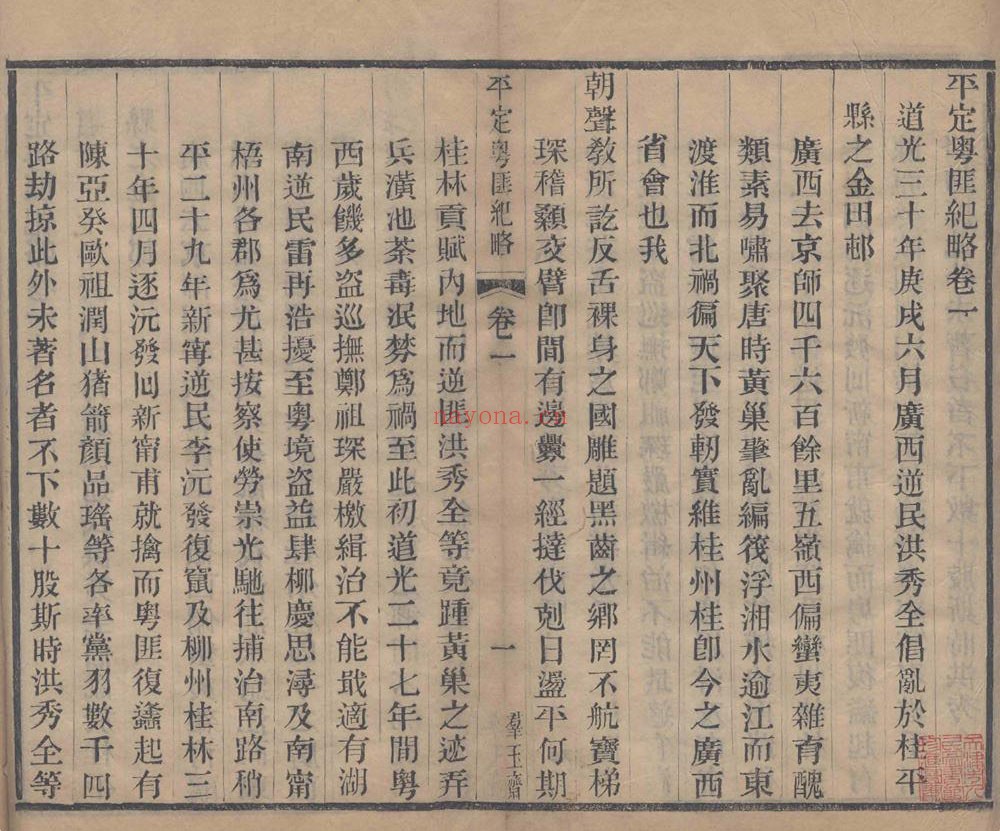 平定粵匪紀略卷一
道光三十年庚戌六月廣西逆民洪秀全倡亂於桂平
縣之金田邨
廣西去京師四千六百餘里五嶺西偏蠻夷雜育醜
類素易嘯聚唐時黃巢肇亂編筏浮湘水逾江而東
渡淮而北禍徧天下發軔實維桂州桂卽今之廣西
省會也我
朝聲敎所訖反舌裸身之國雕題黑齒之鄉罔不航寶梯
琛稽顙交臂卽間有邊釁一經撻伐剋日盪平何期
平定粵匪紀略
卷一
一
羣玉齋
桂林貢賦內地而逆匪洪秀全等竟踵黃巢之迹弄
兵潢池荼毒泯棼爲禍至此初道光二十七年間粵
西歲饑多盜巡撫鄭祖琛嚴檄緝治不能戢適有湖
南逆民雷再浩擾至粵境盜益肆柳慶思潯及南甯
梧州各郡爲尤甚按察使勞崇光馳往捕治南路稍
平二十九年新甯逆民李沅發復竄及柳州桂林三
十年四月逐沅發回新甯甫就擒而粵匪復蠭起有
陳亞癸歐祖潤山猪箭顏品瑤等各率黨羽數千四
路劫掠此外未著名者不下數十股斯時洪秀全等
nayona.cn